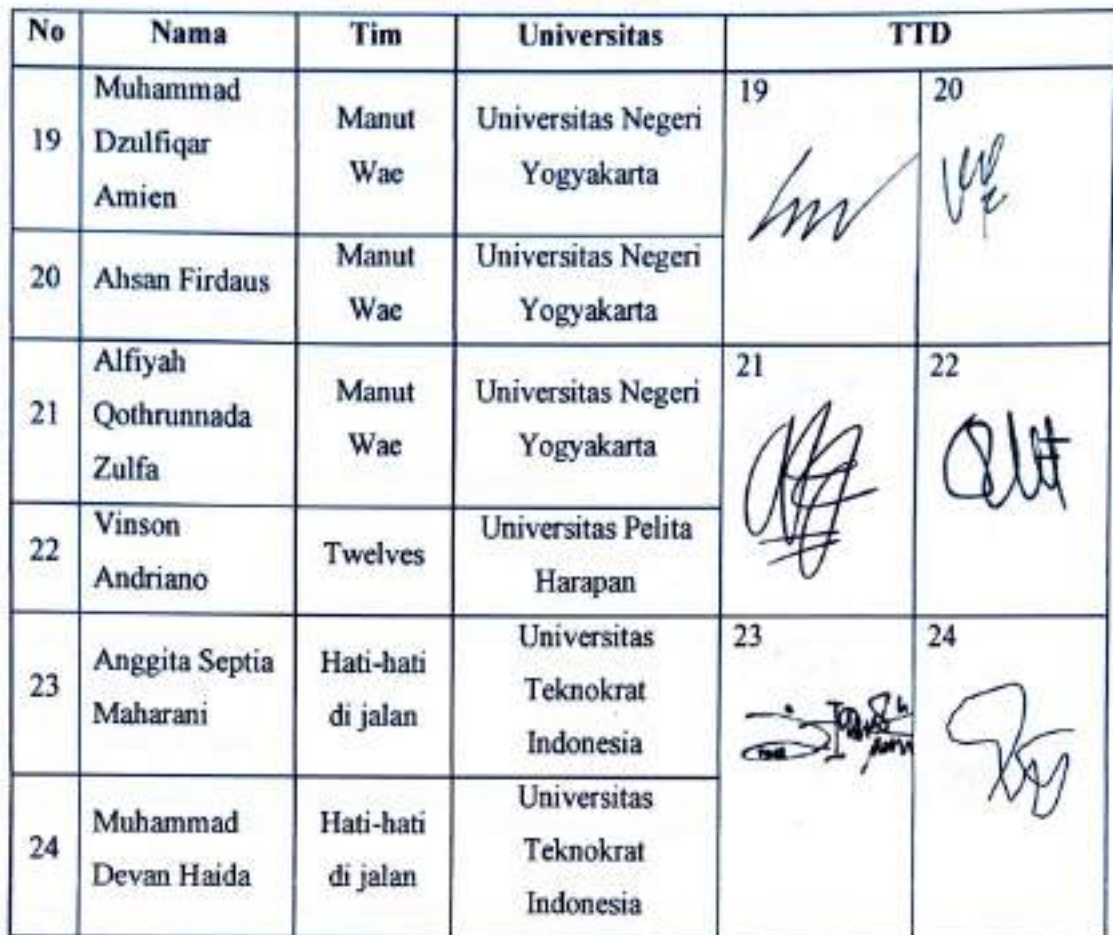 No Nama Tim Universitas TTD
19 Muhammad Dzulfiqar Amien Manut Wae Universitas Negeri Yogyakarta 19 20
20 Ahsan Firdaus Manut Wae Universitas Negeri Yogyakarta
21 Alfiyah Qothrunnada Zulfa Manut Wae Universitas Negeri Yogyakarta 21 22
22 Vinson Andriano Twelves Universitas Pelita Harapan
23 Anggita Septia Maharani Hati-hati di jalan Universitas Teknokrat Indonesia 23 24
24 Muhammad Devan Haida Hati-hati di jalan Universitas Teknokrat Indonesia